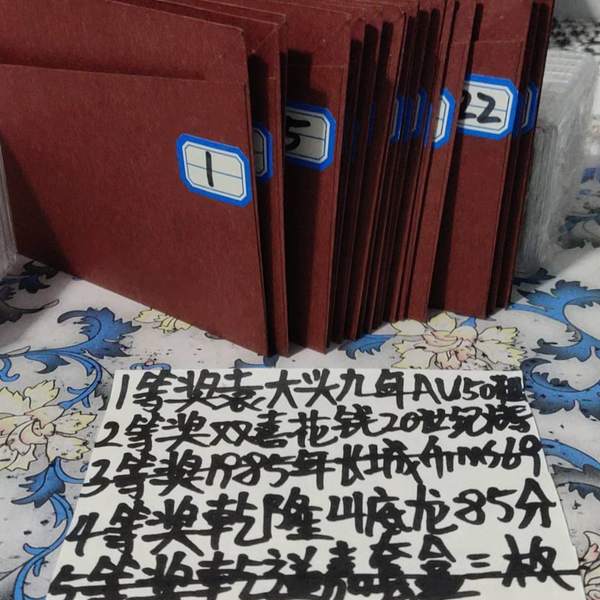 1
5
22
1等奖袁大头九年AU50粗
2等奖双喜花钱20世纪榜
3等奖1985年长城币MS69
4等奖乾隆山底龙85分
5等奖乾 嘉套盒三板